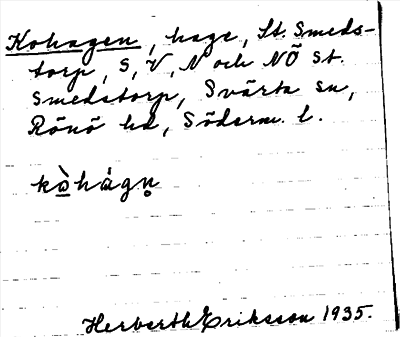 Kohagen, hage, St. Smeds-
torp, S, V, N och NÖ St.
Smedstorp, Svärta sn,
Rönö hd, Söderm. l.
kò̱hágn̥
Herbert Eriksson 1935.